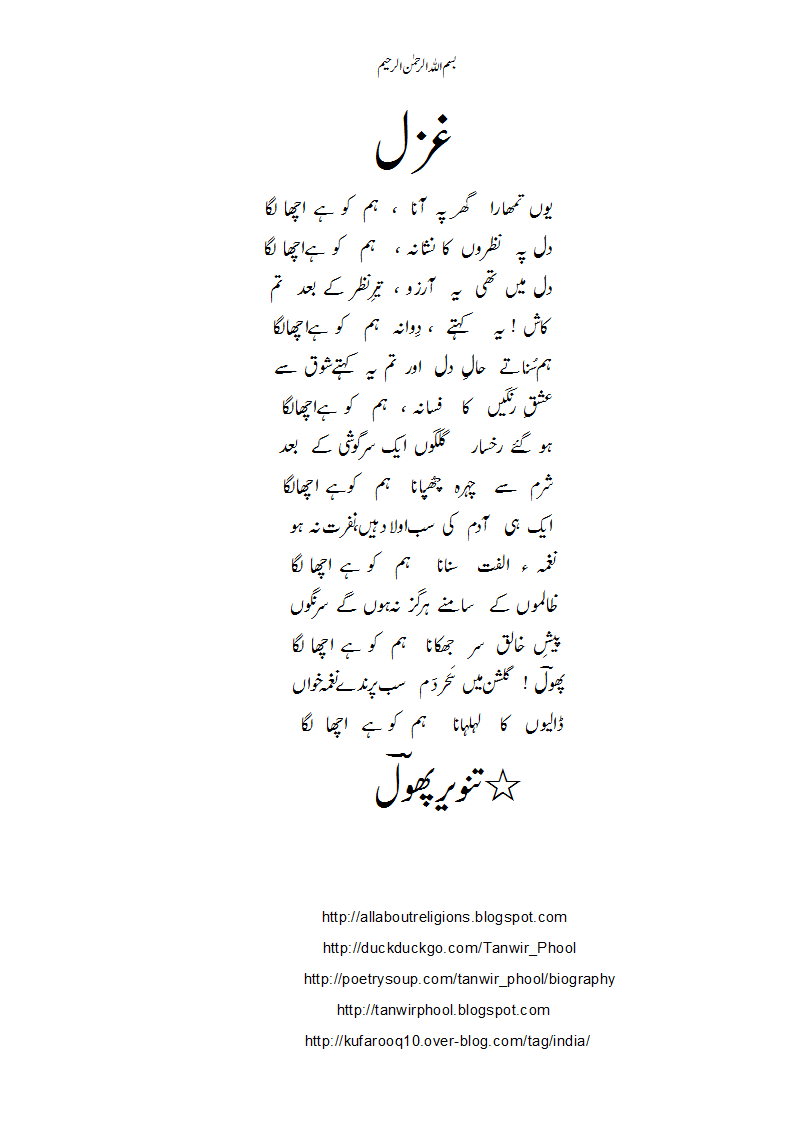 بسم اللہ الرحمٰن الرحیم
غزل
یوں تمھارا گھر پہ آنا ، ہم کو ہے اچھا لگا
دل پہ نظروں کا نشانہ ، ہم کو ہے اچھا لگا
دل میں تھی یہ آرزو ، تیرِ نظر کے بعد تم
کاش ! یہ کہتے ، دِوانہ ہم کو ہے اچھا لگا
ہم سُناتے حالِ دل اور تم یہ کہتے شوق سے
عشقِ رنگیں کا فسانہ ، ہم کو ہے اچھا لگا
ہو گئے رخسار گلگوں ایک سرگوشی کے بعد
شرم سے چہرہ چھپانا ہم کو ہے اچھا لگا
ایک ہی آدم کی سب اولاد ہیں ، نفرت نہ ہو
نغمہ ء الفت سنانا ہم کو ہے اچھا لگا
ظالموں کے سامنے ہرگز نہ ہوں گے سرنگوں
پیشِ خالق سر جھکانا ہم کو ہے اچھا لگا
پھولؔ ! گلشن میں سَحَر دَم سب پرندے نغمہ خواں
ڈالیوں کا لہلہانا ہم کو ہے اچھا لگا
☆ تنویر پھولؔ
http://allaboutreligions.blogspot.com
http://duckduckgo.com/Tanwir_Phool
http://poetrysoup.com/tanwir_phool/biography
http://tanwirphool.blogspot.com
http://kufarooq10.over-blog.com/tag/india/